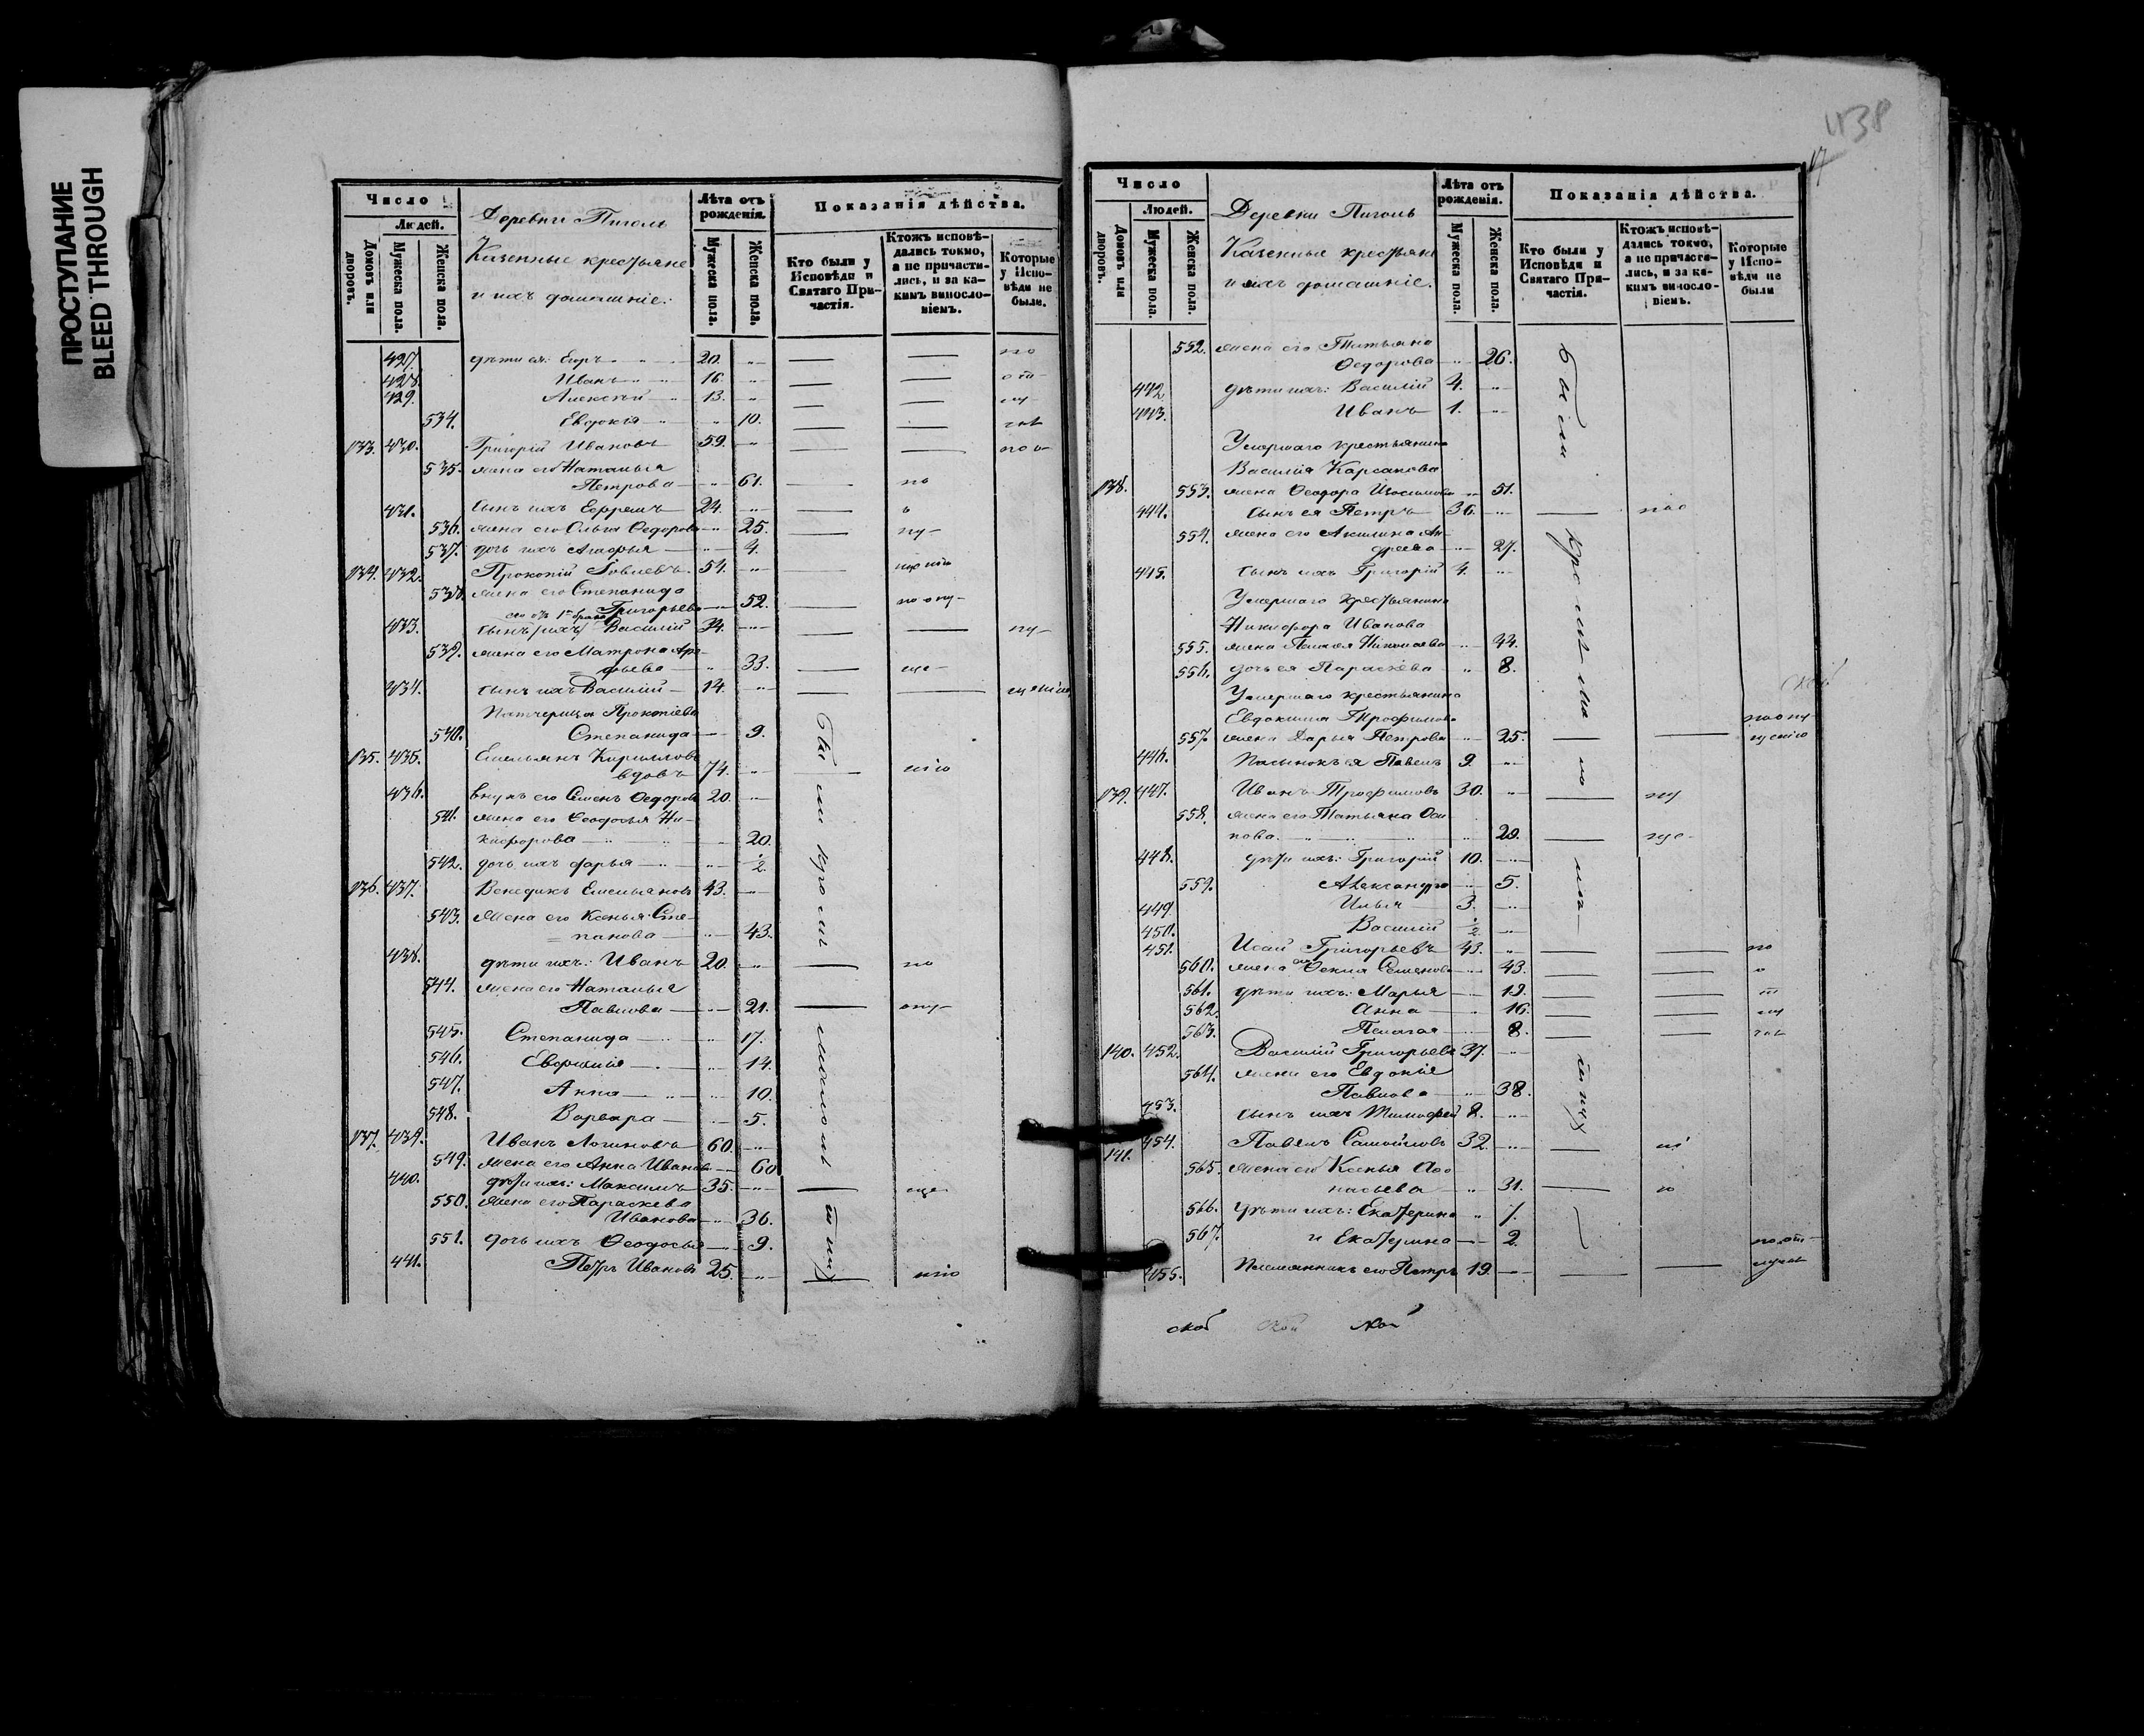 ПРОСТУПАНИЕ
BLEED THROUGH
Число
Людей.
Домовъ или дворовъ.
Мужеска пола.
Женска пола.
Деревни Пиголь
Казенные крестьяне
и ихъ домашніе:
Лѣта отъ рожденія.
Мужеска пола.
Женска пола.
Показанія дѣйства.
Кто были у Исповѣди и Святаго Причастія.
Ктожъ исповѣдались токмо, а не причастились, и за какимъ винословіемъ.
Которые у Исповѣди не были.
427. дѣти ея: Егоръ 20. по
428. Иванъ 16. от-
429. Алексѣй 13. лу-
534. Евдокія 10. чкѣ
133. 430. Григорій Ивановъ 59. по о-
535. жена его Наталья
Петрова 61. по
431. сынъ ихъ Ефремъ 24. о
536. жена его Ольга Ѳедорова 25. пу-
537. дочь ихъ Агафья 4.
134. 432. Прокопій 54. щенію
538. жена его Степанида
Григорьева 52. по опу-
433. сынъ ихъ Василій 34.
539. жена его Матрона Аре-
фьева 33. ще-
434. сынъ ихъ Василій 14. щенію
Патчерица Прокопіева
540. Степанида 9.
135. 435. Емельянъ Кирилловъ
вдовъ 74. нію
436. внукъ его Семенъ Ѳедоровъ 20.
541. жена его Ѳеодосья Ни-
кифорова 20.
542. дочь ихъ Дарья 1/2
136. 437. Венедикъ Емельяновъ 43.
543. Жена его Ксенья Сте-
панова 43.
438. дѣти ихъ: Иванъ 20. по
544. жена его Наталья
Павлова 21. опу-
545. Степанида 17.
546. Евфимія 14.
547. Анна 10.
548. Варвара 5.
137. 439. Иванъ Логиновъ 60.
549. жена его Анна Иванова 60
440. дѣти ихъ: Максимъ 35. ще-
550. жена его Параскева
Иванова 36.
551. дочь ихъ Ѳеодосья 9.
441. Петръ Ивановъ 25. нію
Были кромѣ малолѣтнихъ
438
Число
Людей.
Домовъ или дворовъ.
Мужеска пола.
Женска пола.
Деревни Пиголь
Казенные крестьяне
и ихъ домашніе.
Лѣта отъ рожденія.
Мужеска пола.
Женска пола.
Показанія дѣйства.
Кто были у Исповѣди и Святаго Причастія.
Ктожъ исповѣдались токмо, а не причастились, и за какимъ винословіемъ.
Которые у Исповѣди не были
552. жена его Татьяна
Ѳедорова 26.
442. дѣти ихъ: Василій 4.
443. Иванъ 1.
Умершаго крестьянина
Василія Карсакова
138. 553. жена Ѳеодора 51.
444. сынъ ея Петръ 36. по о
554. жена его Акилина Ан-
дреева 27.
445. сынъ ихъ Григорій 4.
Умершаго крестьянина
Никифора Иванова
555. жена Пелагея Николаева 44.
556. дочь ея Параскева 8.
Умершаго крестьянина
Евдокима Трофимова по опу-
557. жена Дарья Петрова 25. щенію
446. Пасынокъ ея Павелъ 9.
139. 447. Иванъ Трофимовъ 30. пу
558. жена его Татьяна Оси
пова. 29. ще-
448. дѣти ихъ: Григорій 10.
559. Александра 5.
449. Илья 3.
450. Василій 1/2
451. Исай Григорьевъ 43. по
560. жена его Ѳекла Семенова 43. о
561. дѣти ихъ: Марья 19. т
562. Анна 16. лу
563. Пелагея 8. чкѣ
140. 452. Василій Григорьевъ 37.
564. жена его Евдокія
Павлова 38.
453. сынъ ихъ Тимофей 8.
141. 454. Павелъ Самойловъ 32. ні
565. жена его Ксенья Аѳа
насьева 31. ю
566. дѣти ихъ: Екатерина 7.
567. и Екатерина 2. по от-
455. Племянникъ его Петръ 19. лучкѣ
Были кромѣ малолѣтнихъ
ской ской кой